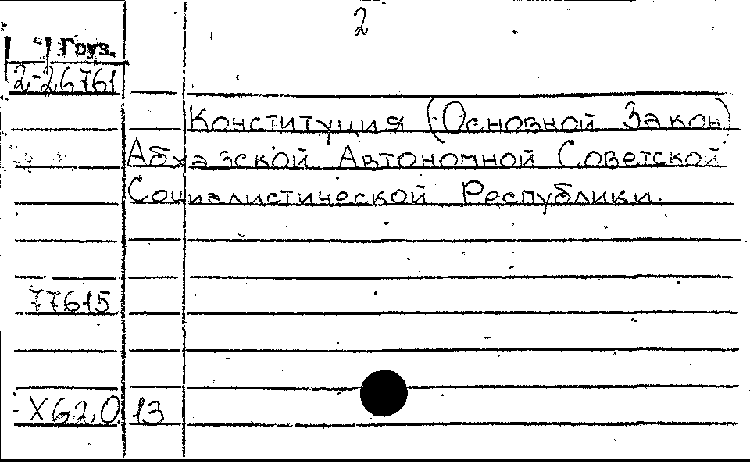 2
Груз.
2-26761
Конституция (Основной Закон)
Абхазской Автономной Советской
Социалистической Республики.
77615
X62.0 13